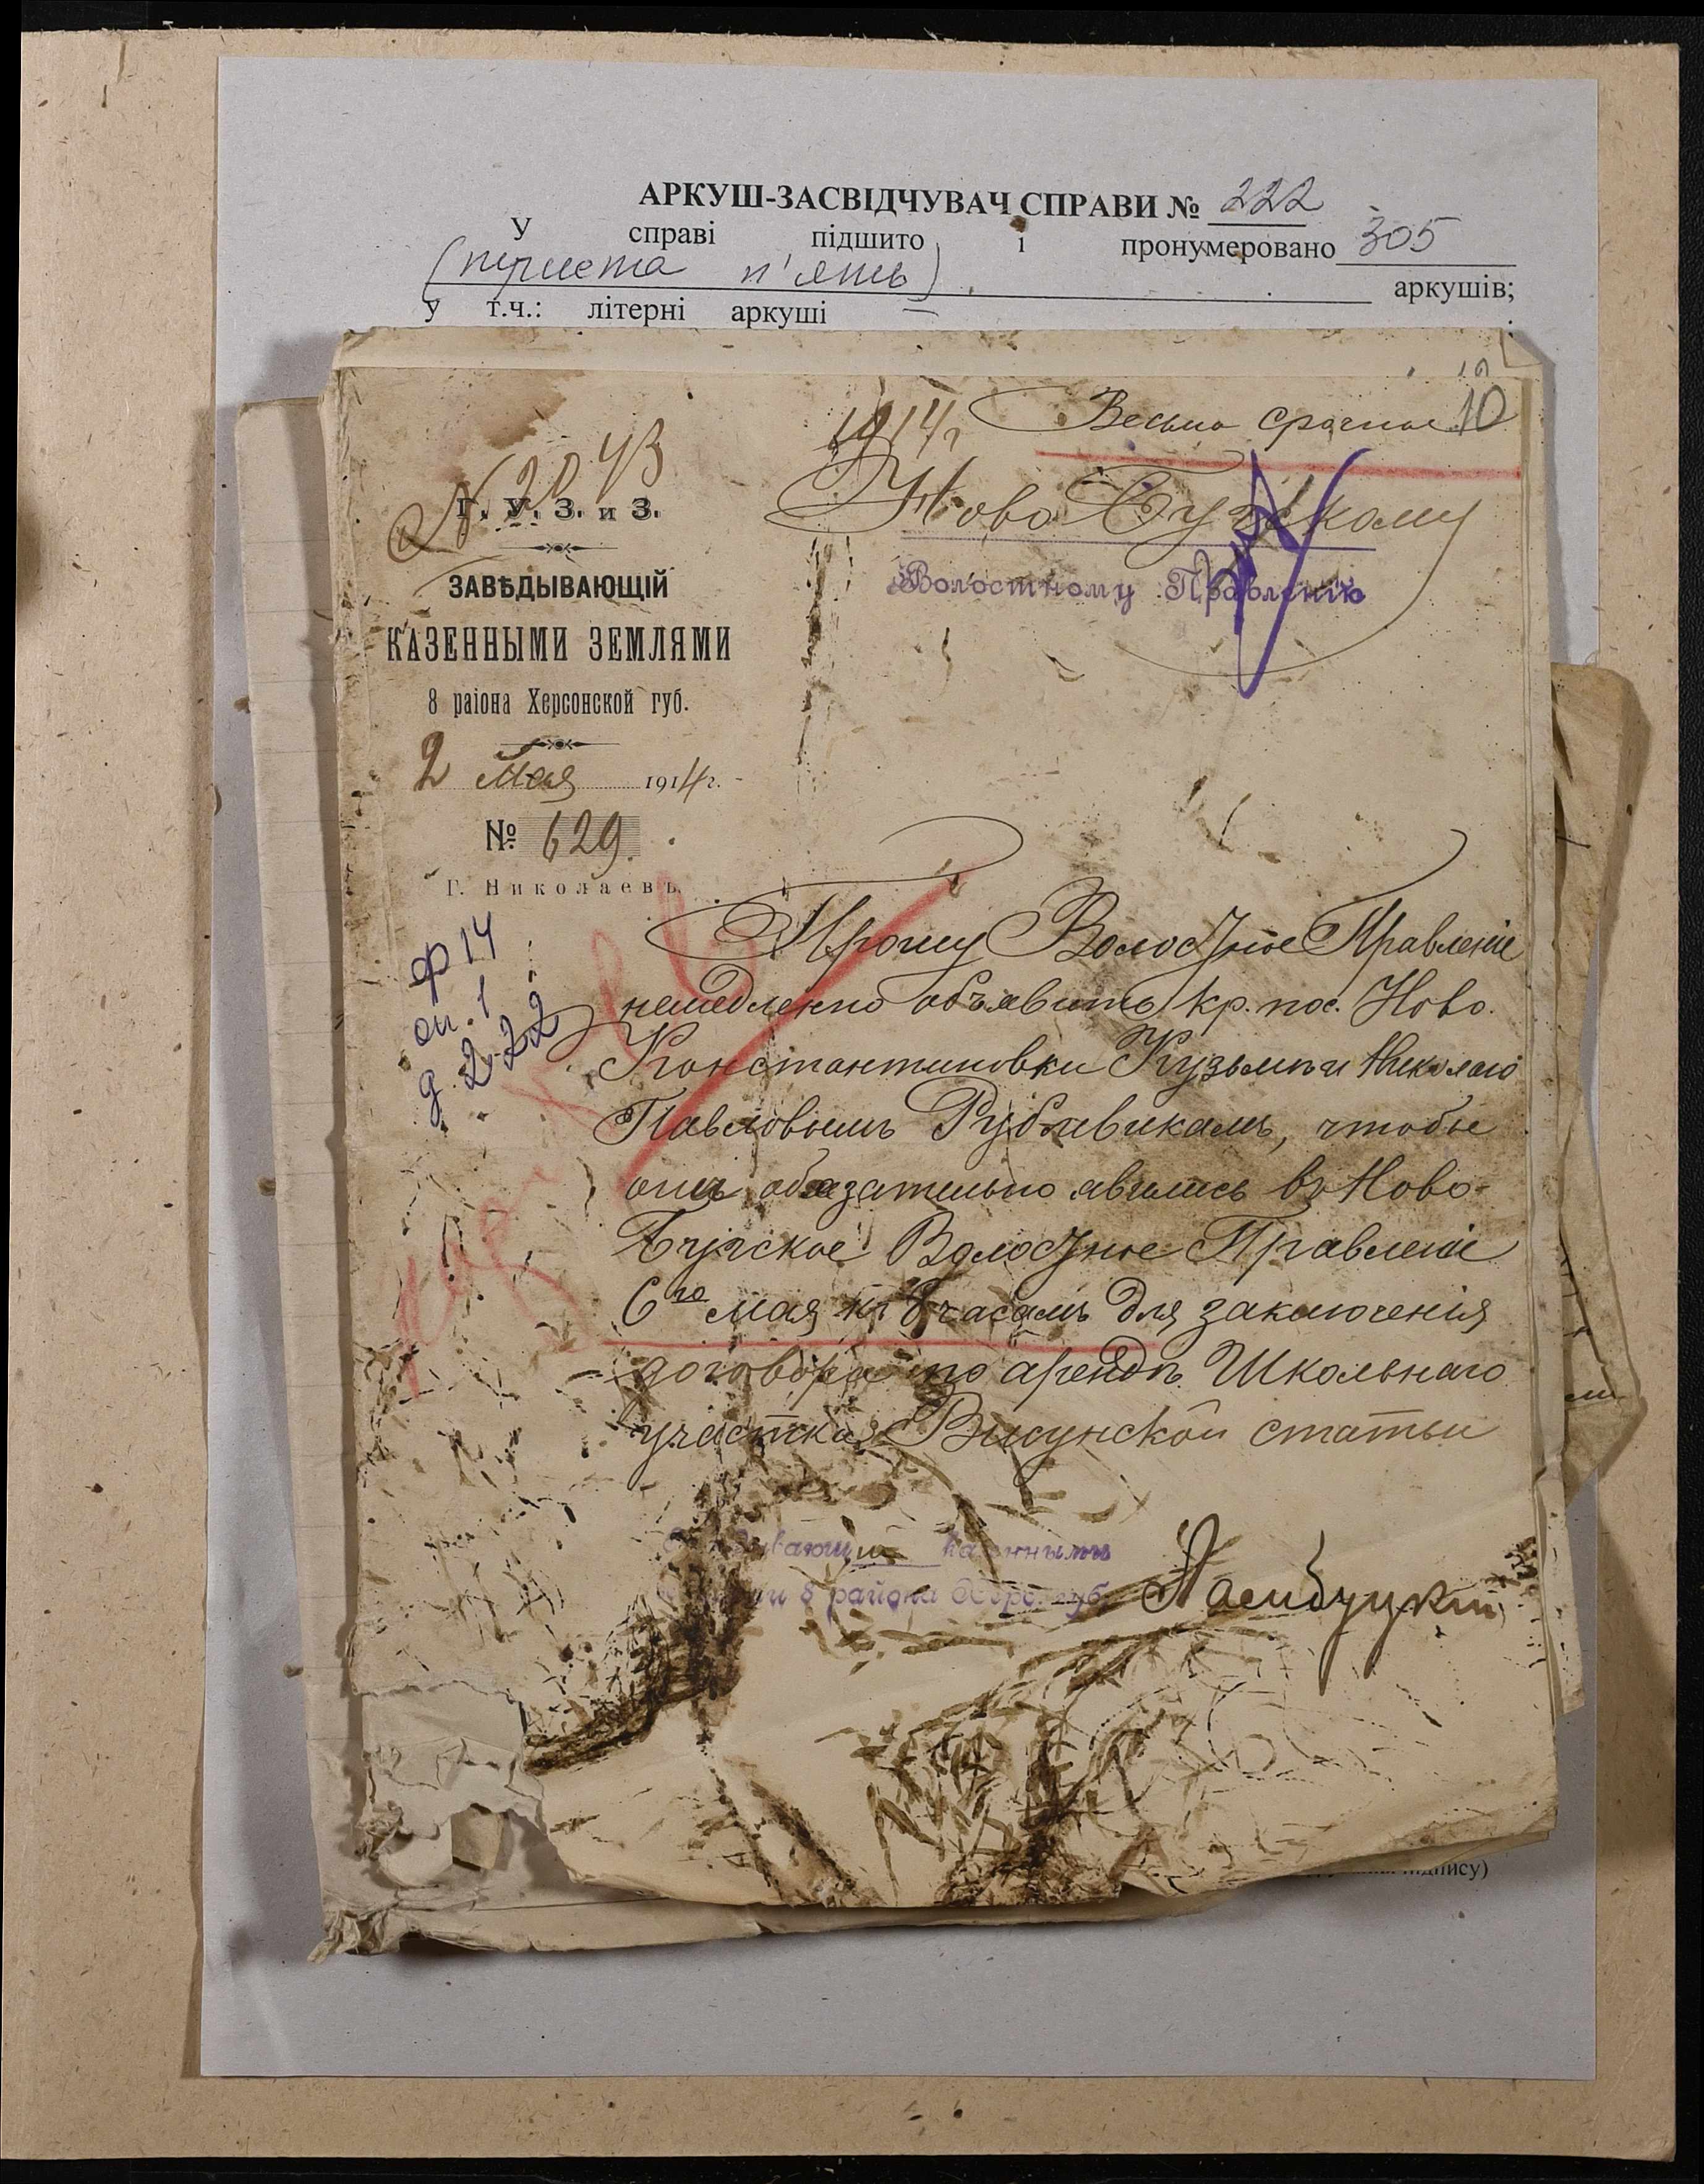 АРКУШ-ЗАСВІДЧУВАЧ СПРАВИ № 222
У справі підшито і пронумеровано 305
(триста п'ять) аркушів;
у т.ч.: літерні аркуші — ;
1914 г
Весьма срочное 10
№ 2043
Г. У. З. и З.
ЗАВѢДЫВАЮЩІЙ
КАЗЕННЫМИ ЗЕМЛЯМИ
8 раіона Херсонской губ.
2 Мая 1914 г.
№ 629.
Г. Николаевъ.
Ново Бугскому
Волостному Правленію
ф 14
оп. 1
д. 222
Прошу Волостное Правленіе
немедленно объявить кр. пос. Ново-
Константиновки Кузьмѣ и Николаю
Павловымъ, чтобы
они обязательно явились въ Ново-
Бугское Волостное Правленіе
6го мая къ 8 часамъ для заключенія
договора по арендѣ Школьнаго
участка Висунской статьи
казенными
8 района Херс. губ.
підпису)